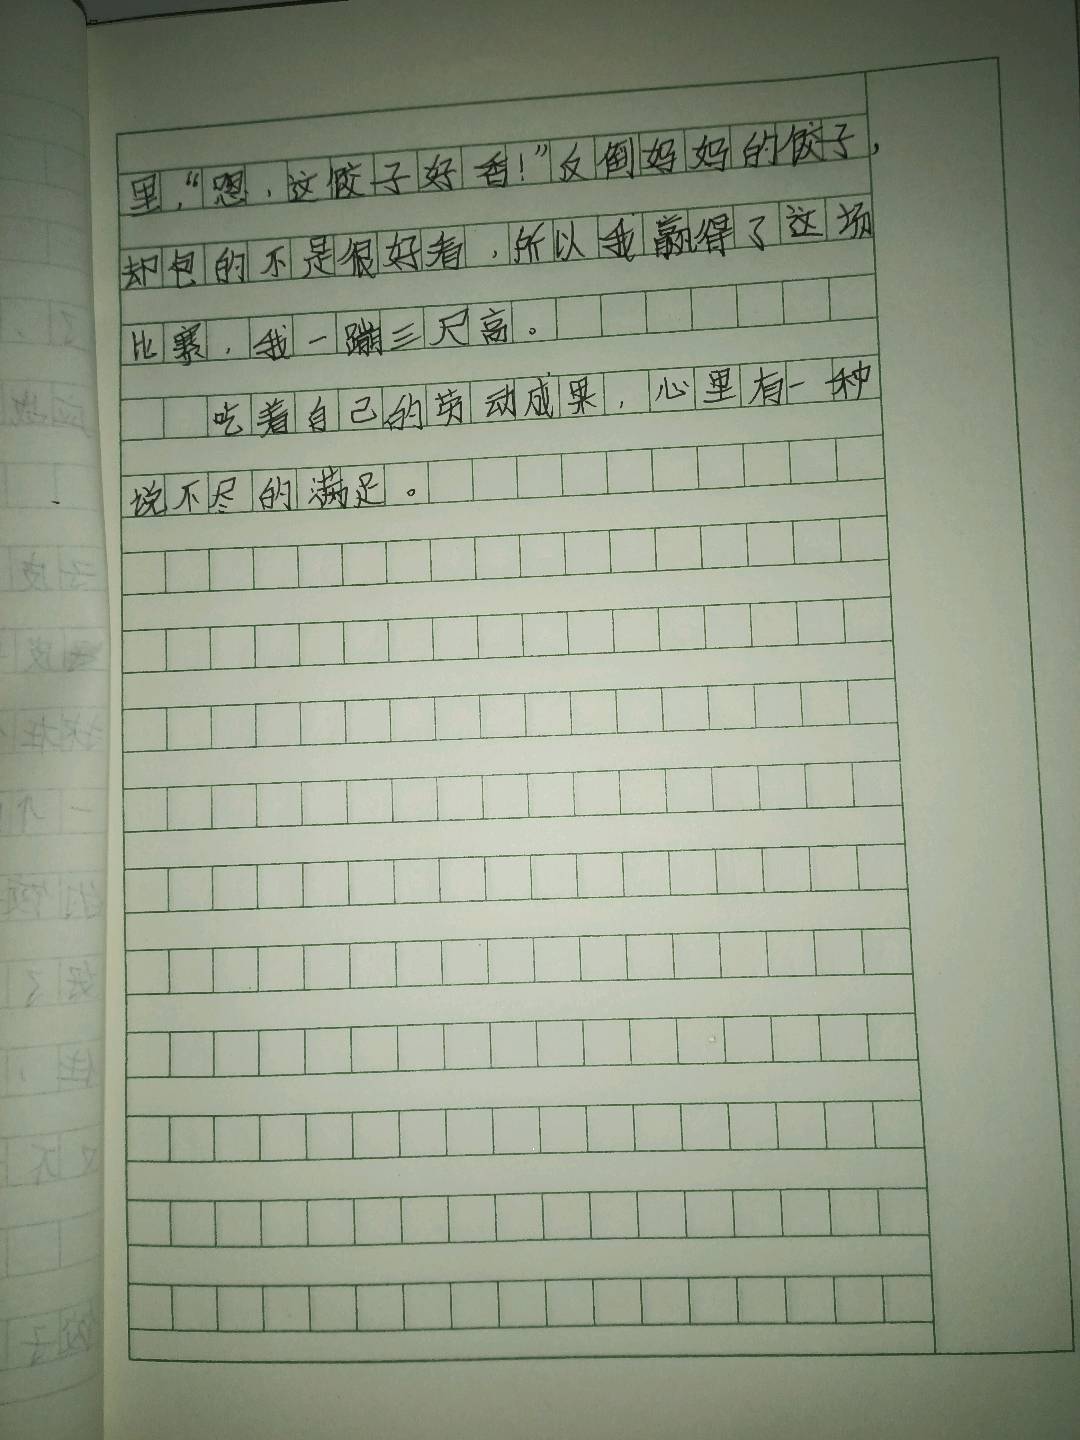 里，“嗯，这饺子好香！”反倒妈妈的饺子，
却包的不是很好看，所以我赢得了这场
比赛，我一蹦三尺高。
吃着自己的劳动成果，心里有一种
说不尽的满足。